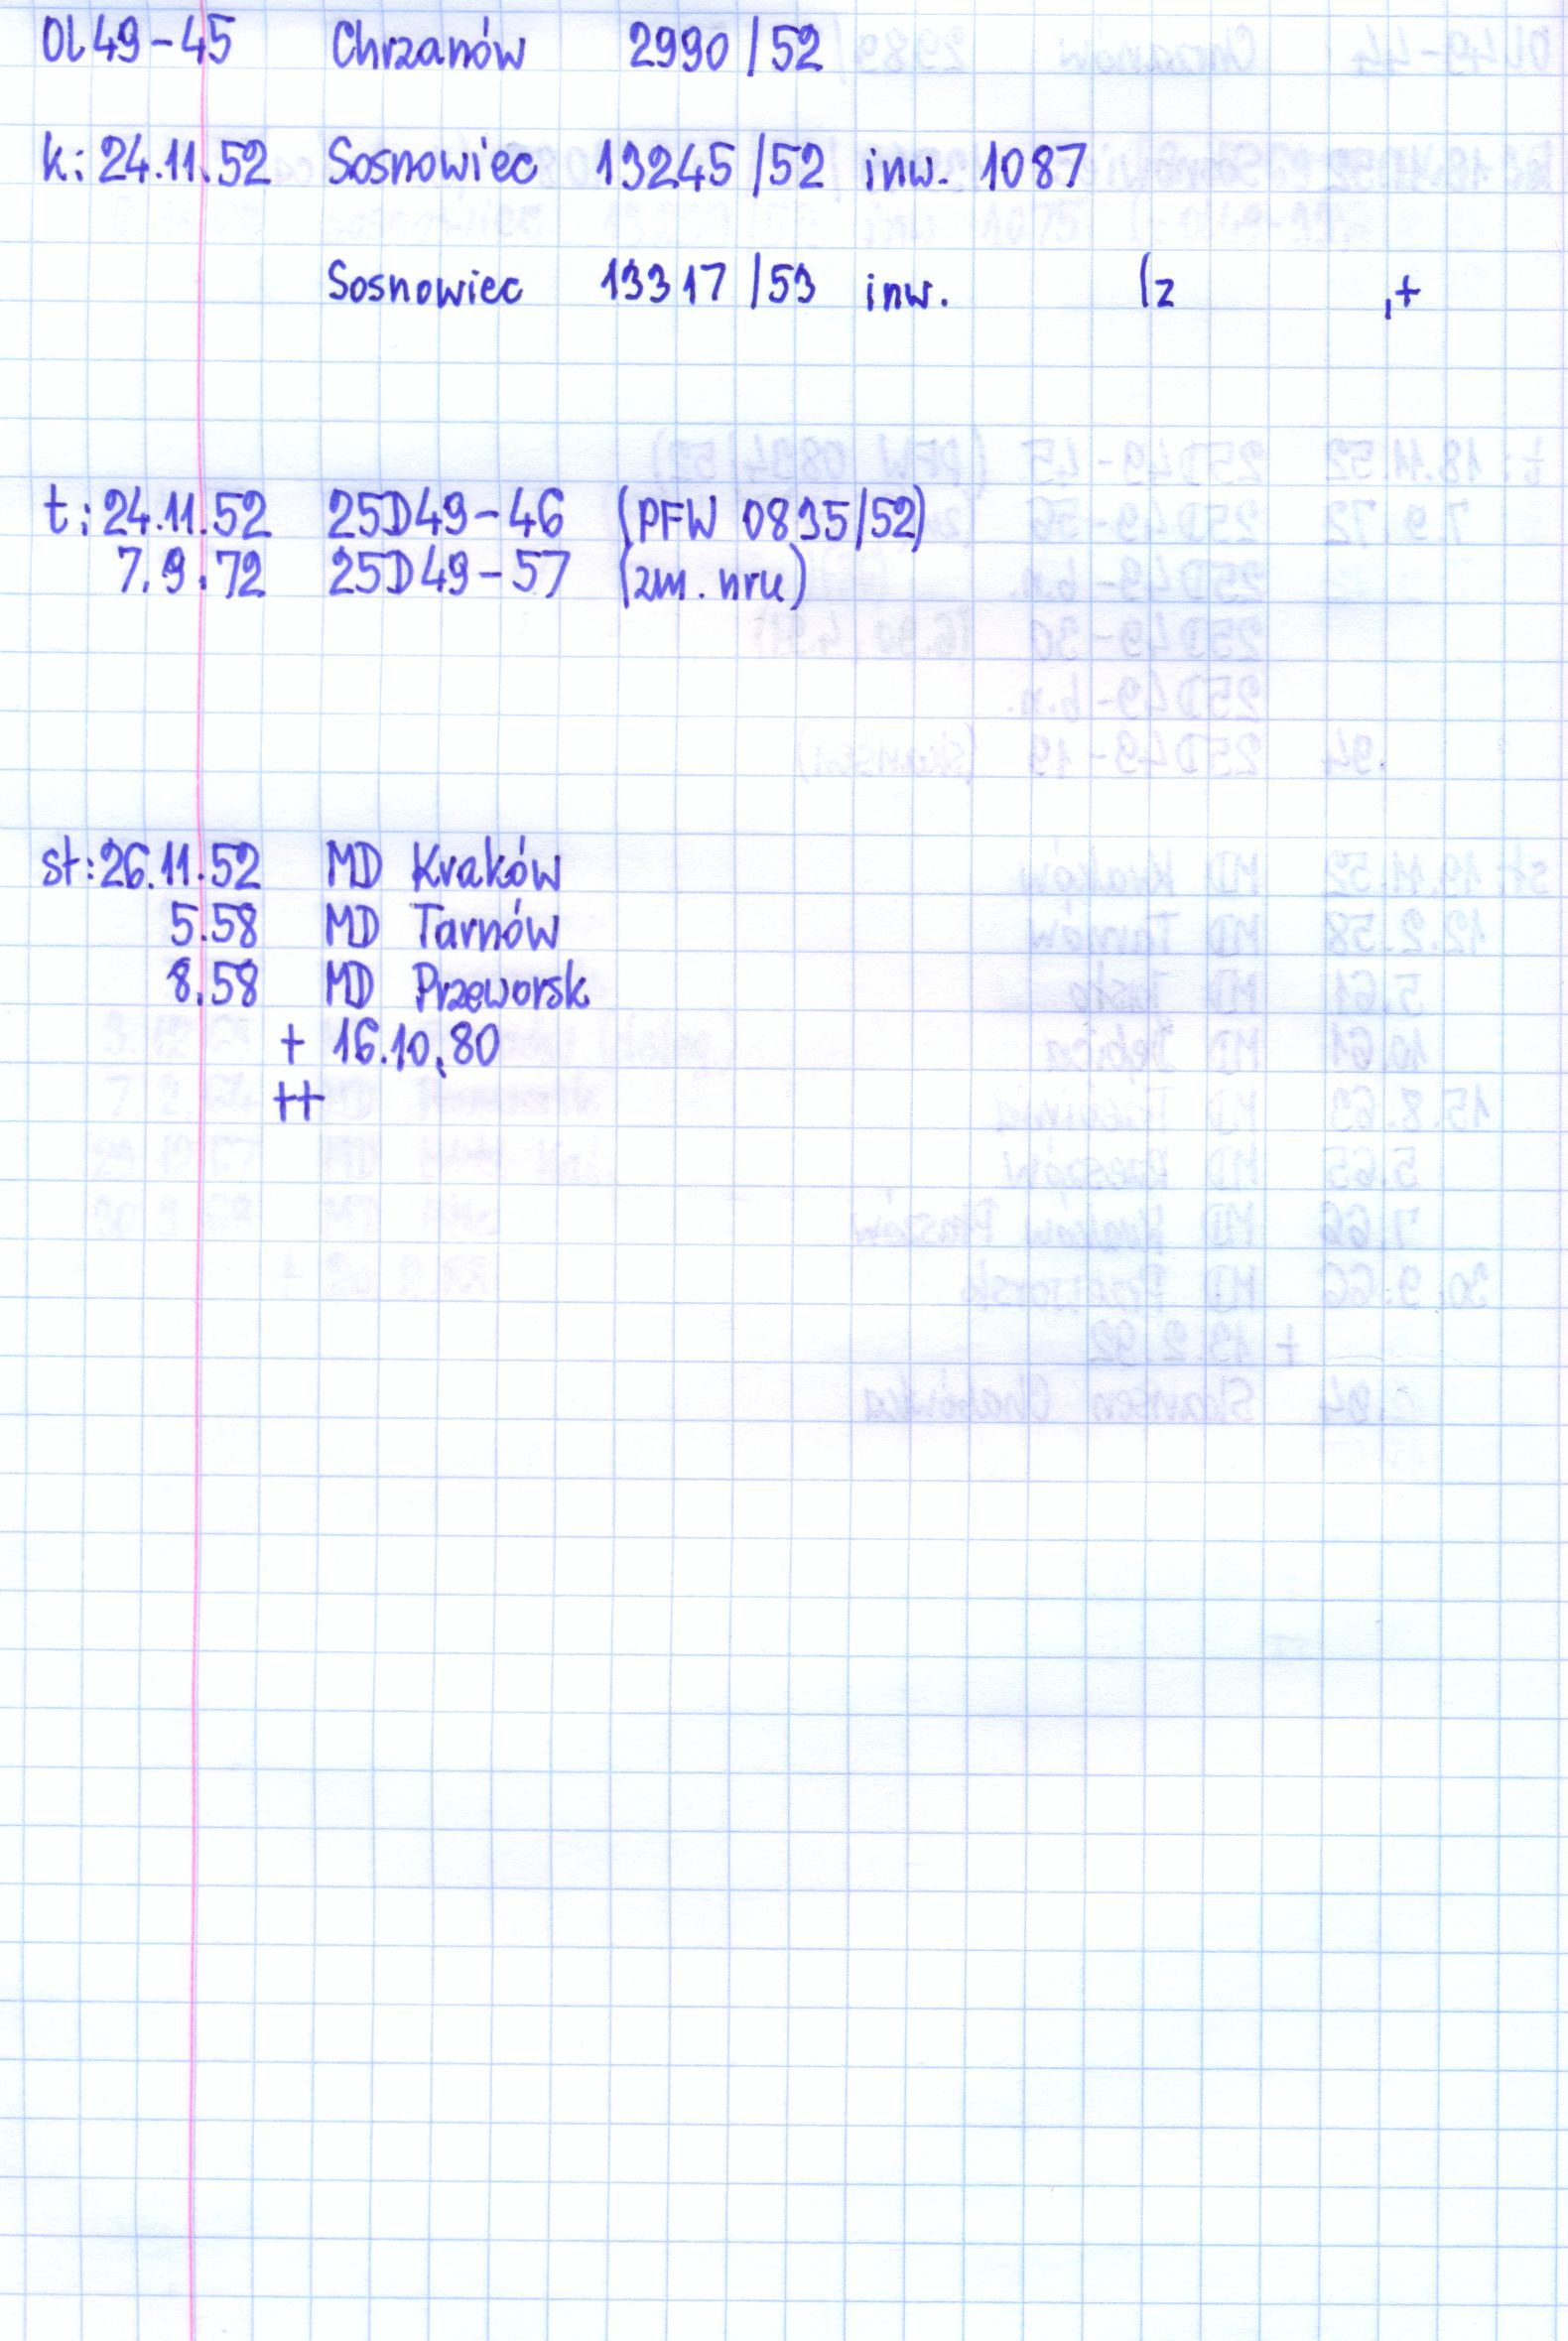 Ol49-45 Chrzanów 2990/52
k: 24.11.52 Sosnowiec 13245/52 inw. 1087
Sosnowiec 13317/53 inw. (z ,+
t: 24.11.52 25D49-46 (PFW 0835/52)
7.9.72 25D49-57 (zm. nru)
st: 26.11.52 MD Kraków
5.58 MD Tarnów
8.58 MD Przeworsk
+ 16.10.80
++